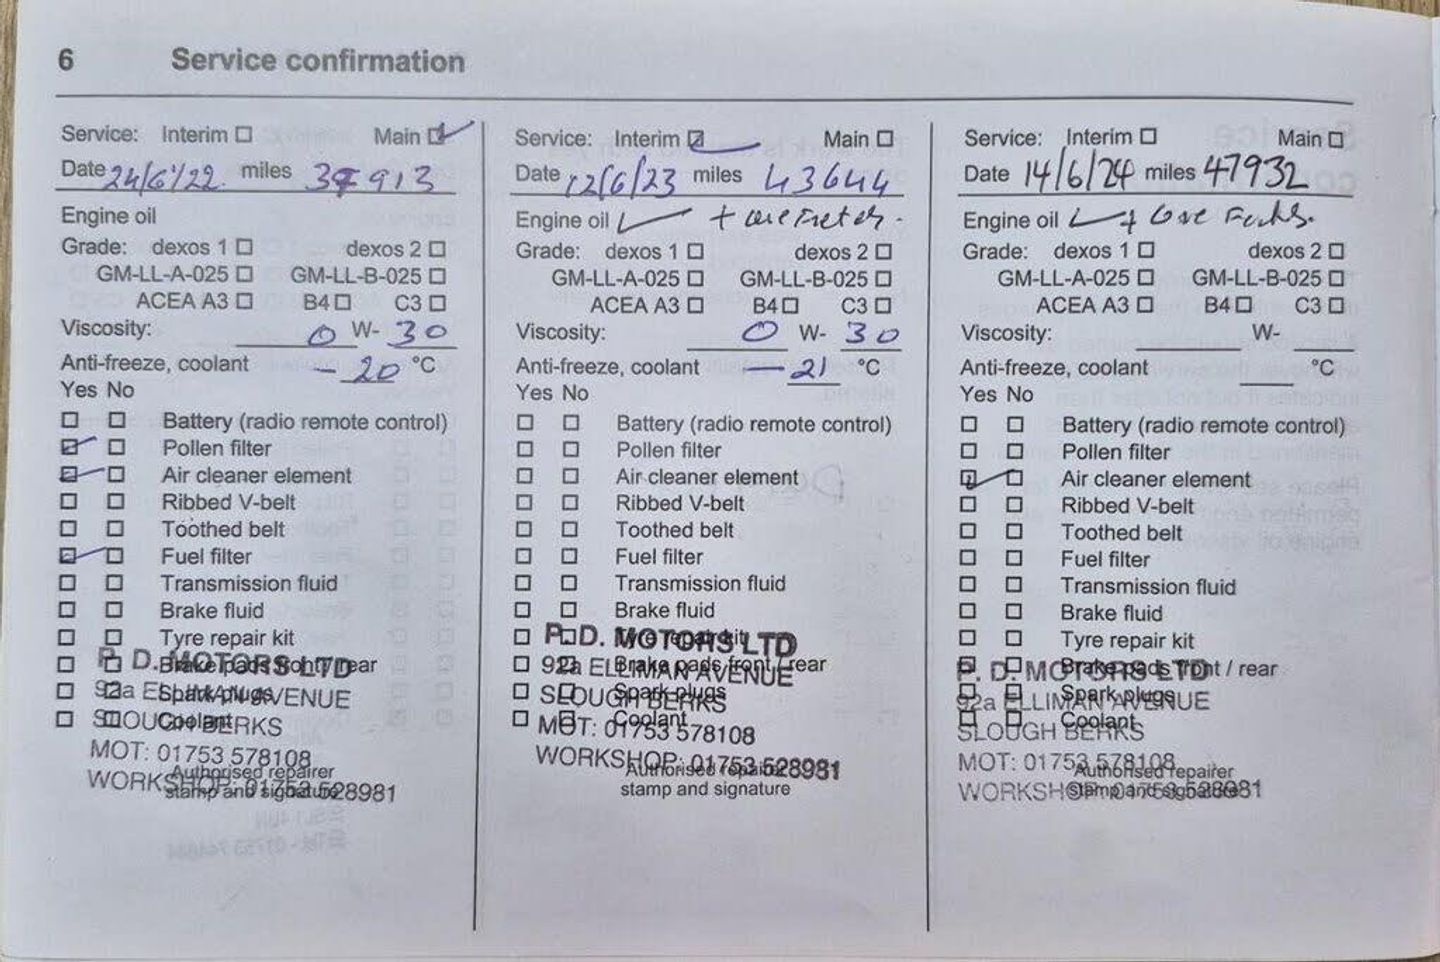 6 Service confirmation
Service: Interim Main
Date 24/6/22 miles 913
Engine oil
Grade: dexos 1 dexos 2
GM-LL-A-025 GM-LL-B-025
ACEA A3 B4 C3
Viscosity: 0 W- 30
Anti-freeze, coolant -20 °C
Yes No
Battery (radio remote control)
Pollen filter
Air cleaner element
Ribbed V-belt
Toothed belt
Fuel filter
Transmission fluid
Brake fluid
Tyre repair kit
Brake pads front / rear
Spark plugs
Coolant
P. D. MOTORS LTD
92a ELLIMAN AVENUE
SLOUGH BERKS
MOT: 01753 578108
WORKSHOP: 01753 528981
Authorised repairer
stamp and signature
Service: Interim Main
Date 12/6/23 miles 43644
Engine oil +
Grade: dexos 1 dexos 2
GM-LL-A-025 GM-LL-B-025
ACEA A3 B4 C3
Viscosity: 0 W- 30
Anti-freeze, coolant -21 °C
Yes No
Battery (radio remote control)
Pollen filter
Air cleaner element
Ribbed V-belt
Toothed belt
Fuel filter
Transmission fluid
Brake fluid
Tyre repair kit
Brake pads front / rear
Spark plugs
Coolant
P. D. MOTORS LTD
92a ELLIMAN AVENUE
SLOUGH BERKS
MOT: 01753 578108
WORKSHOP: 01753 528981
Authorised repairer
stamp and signature
Service: Interim Main
Date 14/6/24 miles 47932
Engine oil +
Grade: dexos 1 dexos 2
GM-LL-A-025 GM-LL-B-025
ACEA A3 B4 C3
Viscosity: W-
Anti-freeze, coolant °C
Yes No
Battery (radio remote control)
Pollen filter
Air cleaner element
Ribbed V-belt
Toothed belt
Fuel filter
Transmission fluid
Brake fluid
Tyre repair kit
Brake pads front / rear
Spark plugs
Coolant
P. D. MOTORS LTD
92a ELLIMAN AVENUE
SLOUGH BERKS
MOT: 01753 578108
WORKSHOP: 01753 528981
Authorised repairer
stamp and signature